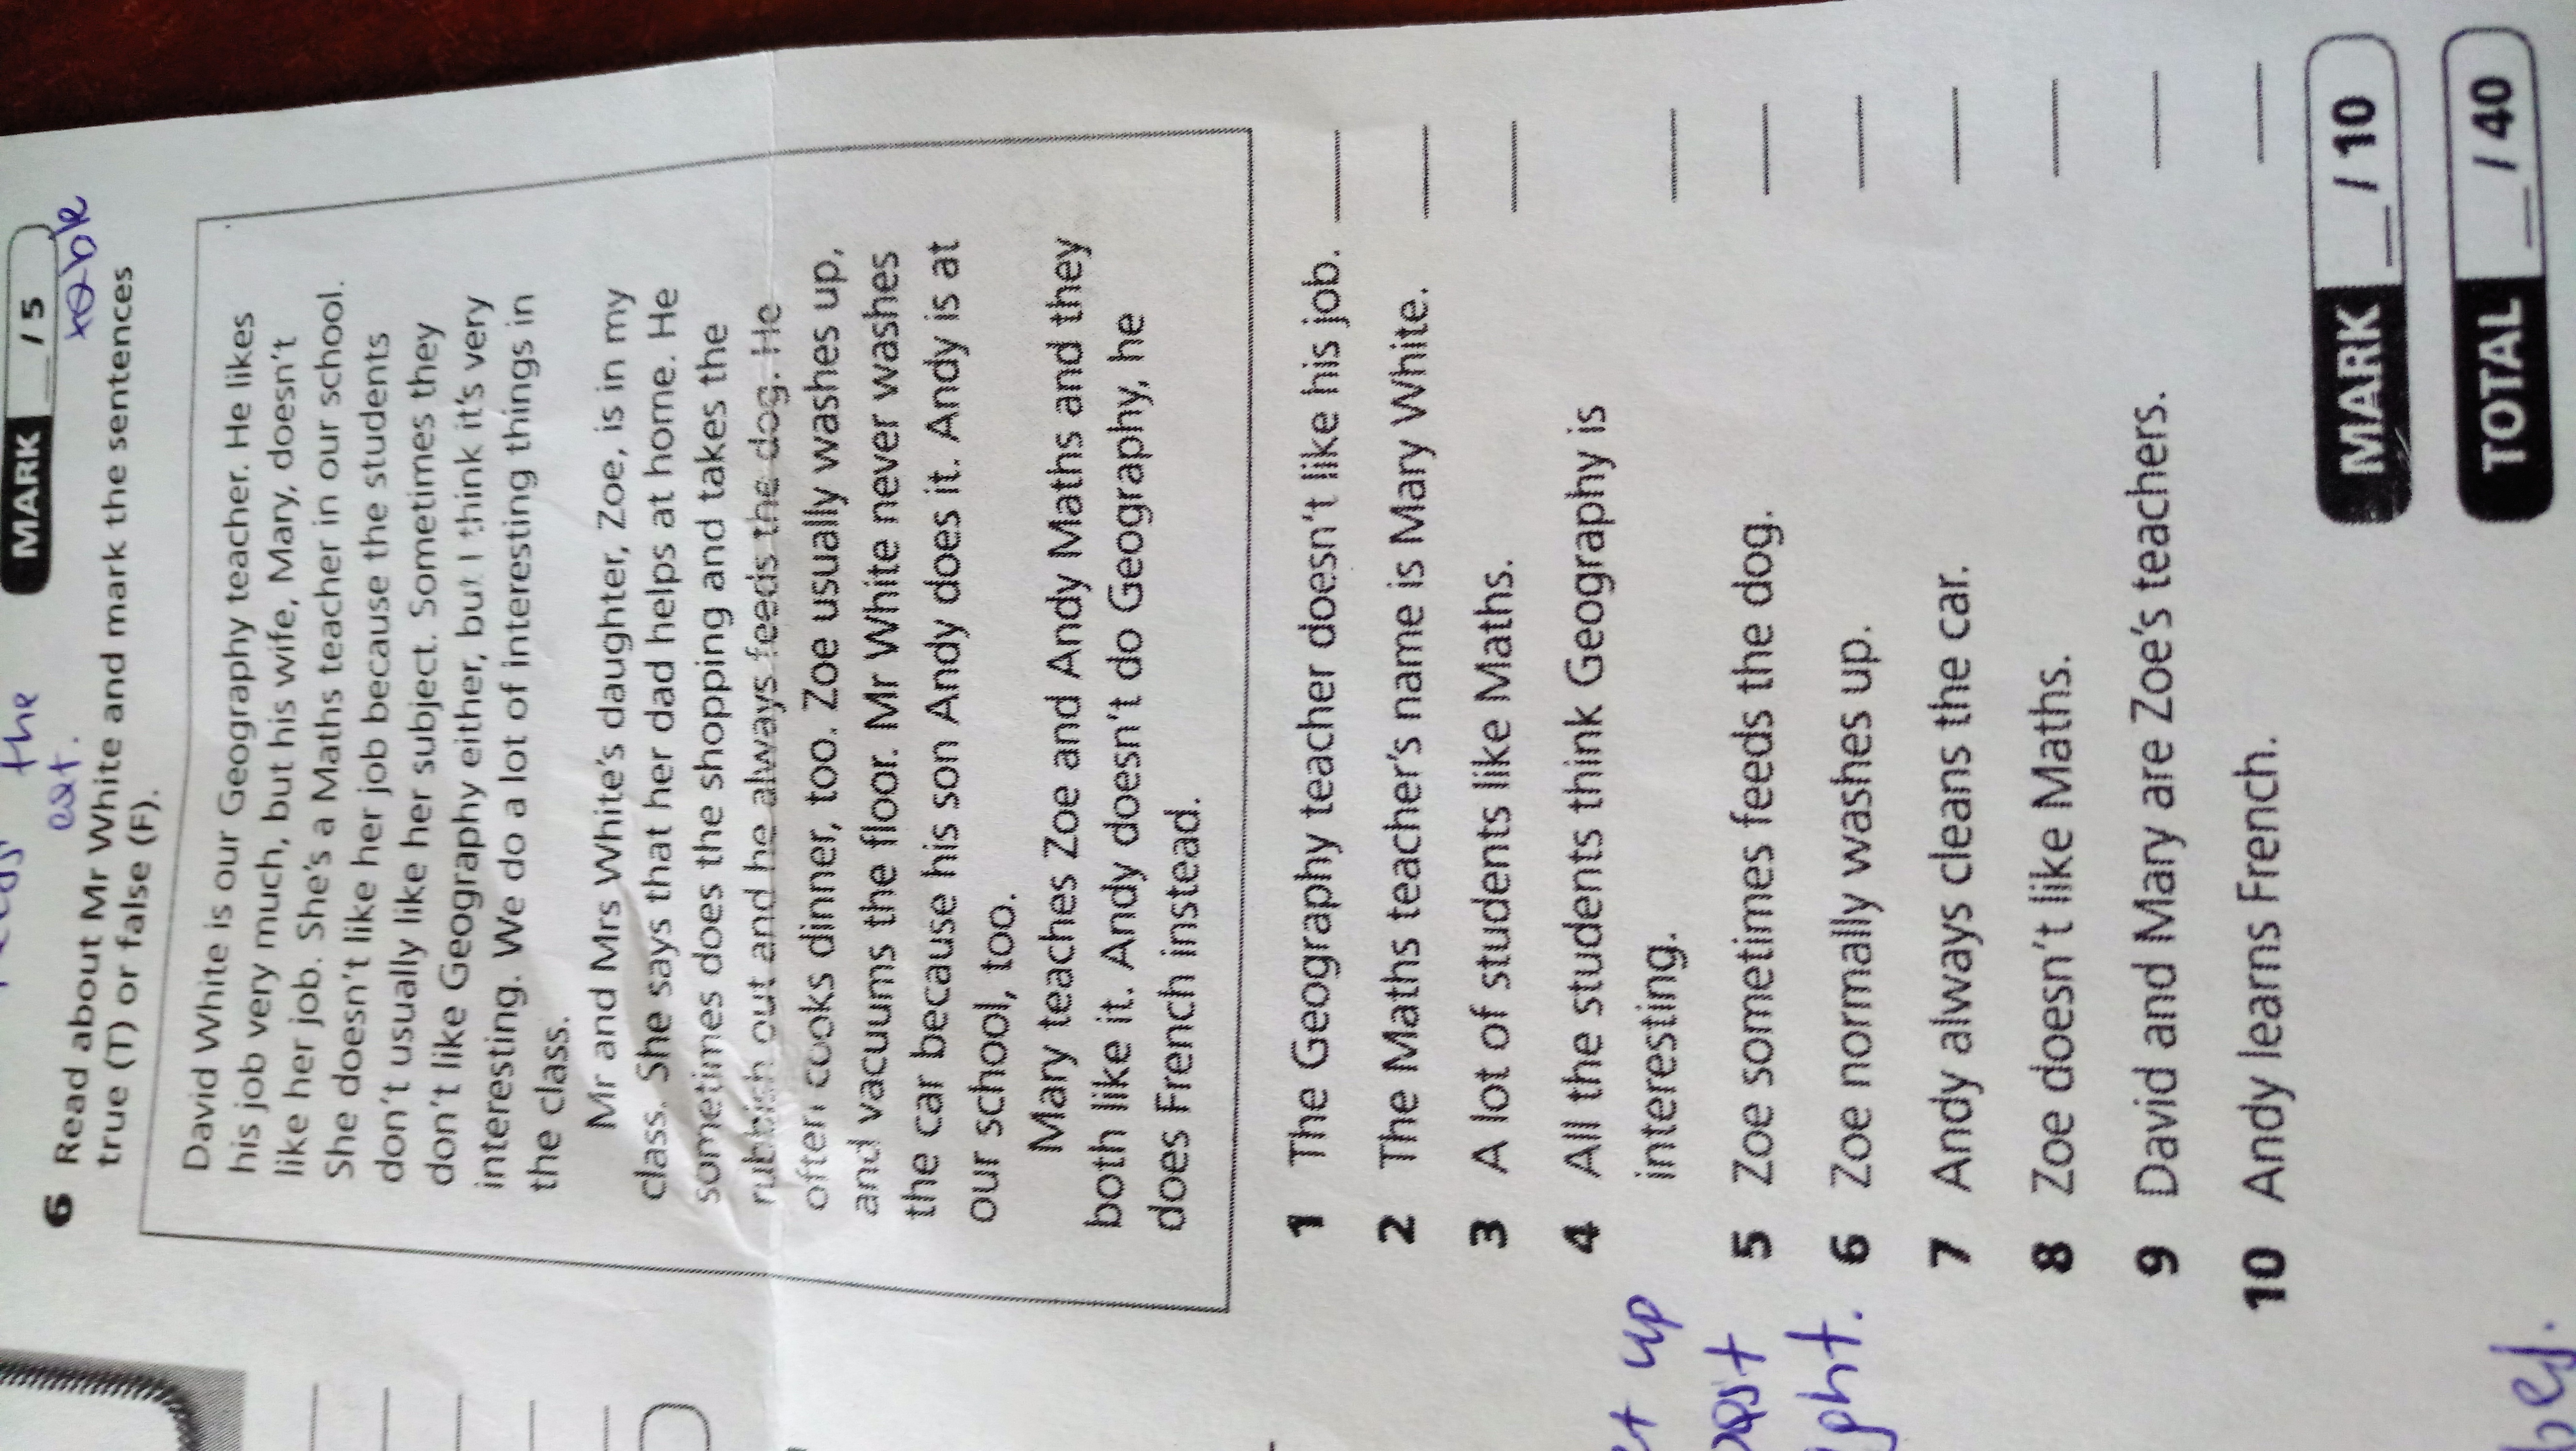 MARK __ / 5
the
eat.
6 Read about Mr White and mark the sentences
true (T) or false (F).
David White is our Geography teacher. He likes
his job very much, but his wife, Mary, doesn't
like her job. She's a Maths teacher in our school.
She doesn't like her job because the students
don't usually like her subject. Sometimes they
don't like Geography either, but I think it's very
interesting. We do a lot of interesting things in
the class.
Mr and Mrs White's daughter, Zoe, is in my
class. She says that her dad helps at home. He
sometimes does the shopping and takes the
rubbish out and he always feeds the dog. He
often cooks dinner, too. Zoe usually washes up,
and vacuums the floor. Mr White never washes
the car because his son Andy does it. Andy is at
our school, too.
Mary teaches Zoe and Andy Maths and they
both like it. Andy doesn't do Geography, he
does French instead.
1 The Geography teacher doesn't like his job. __
2 The Maths teacher's name is Mary White. __
3 A lot of students like Maths. __
4 All the students think Geography is
interesting. __
5 Zoe sometimes feeds the dog. __
6 Zoe normally washes up. __
7 Andy always cleans the car. __
8 Zoe doesn't like Maths. __
9 David and Mary are Zoe's teachers. __
10 Andy learns French. __
MARK __ / 10
TOTAL __ / 40
up